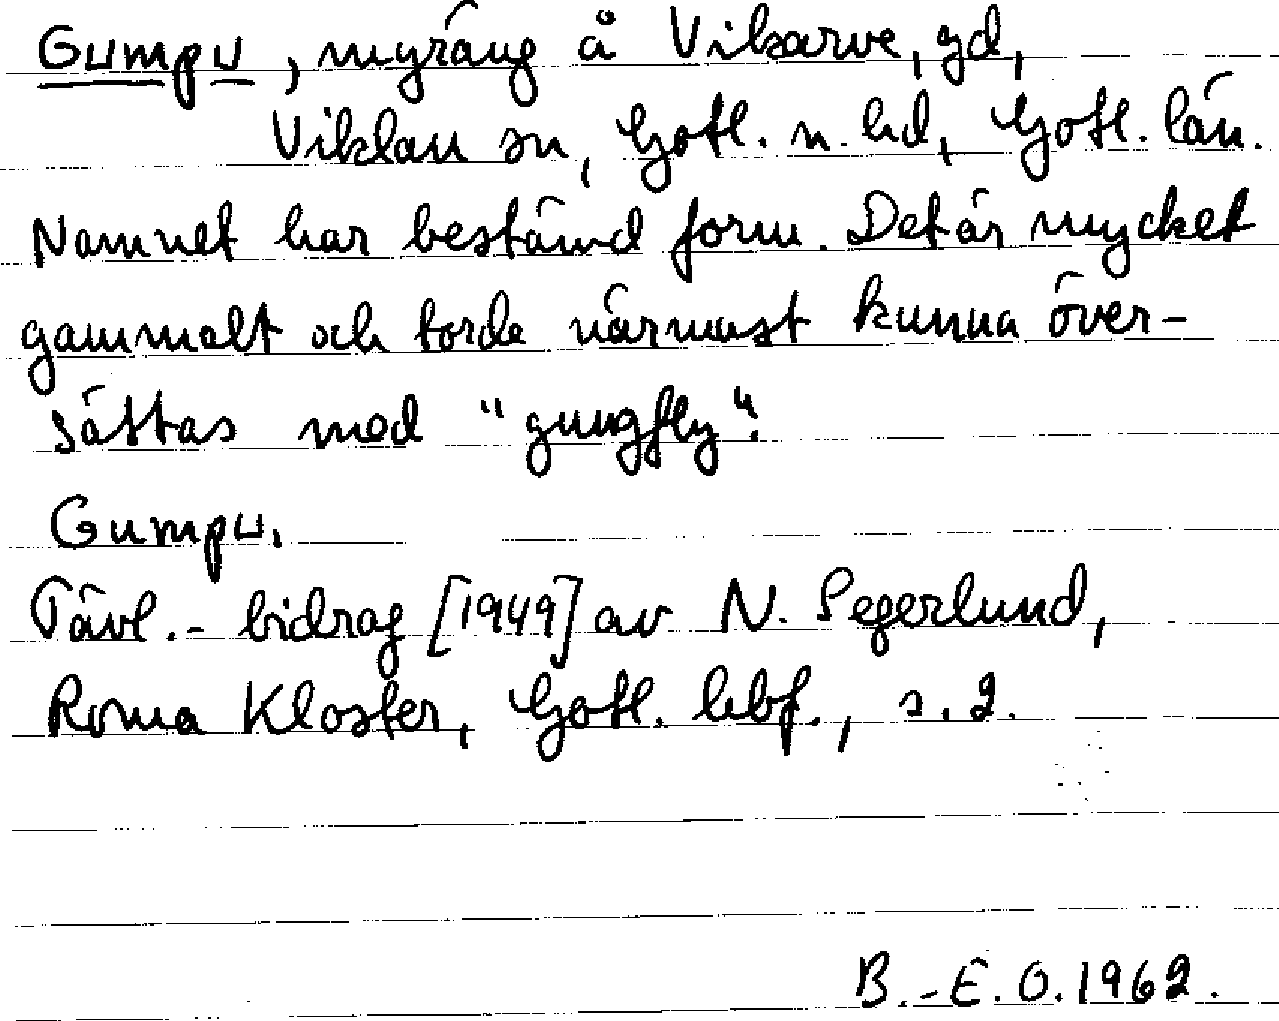 Gumpu, myräng å Vikarve, gd,
Viklau sn, Gotl. n. hd, Gotl. län.
Namnet har bestämd form. Det är mycket
gammalt och torde närmast kunna över-
sättas med "gungfly".
Gumpu.
Tävl.-bidrag [1949] av N. Segerlund,
Roma Kloster, Gotl. hbf., s. 2.
B.-E. O. 1962.